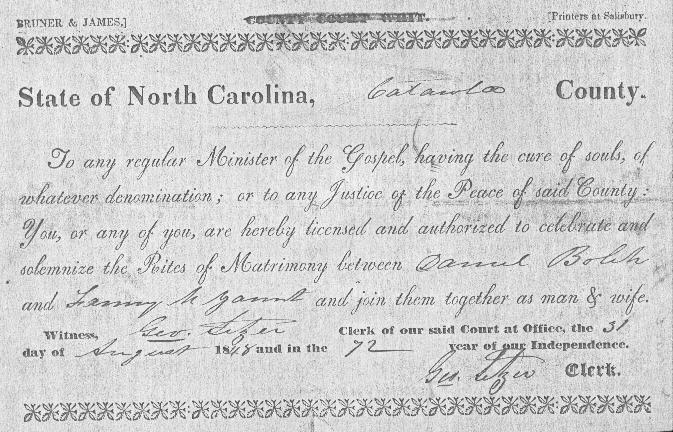 BRUNER & JAMES,] COUNTY COURT WRIT. [Printers at Salisbury.
State of North Carolina, Catawba County.
To any regular Minister of the Gospel, having the cure of souls, of
whatever denomination; or to any Justice of the Peace of said County:
You, or any of you, are hereby licensed and authorized to celebrate and
solemnize the Rites of Matrimony between Daniel Bolch
and Fanny M Yount and join them together as man & wife.
Witness, Geo. Setzer Clerk of our said Court at Office, the 31
day of August 1848 and in the 72 year of our Independence.
Geo. Setzer Clerk.